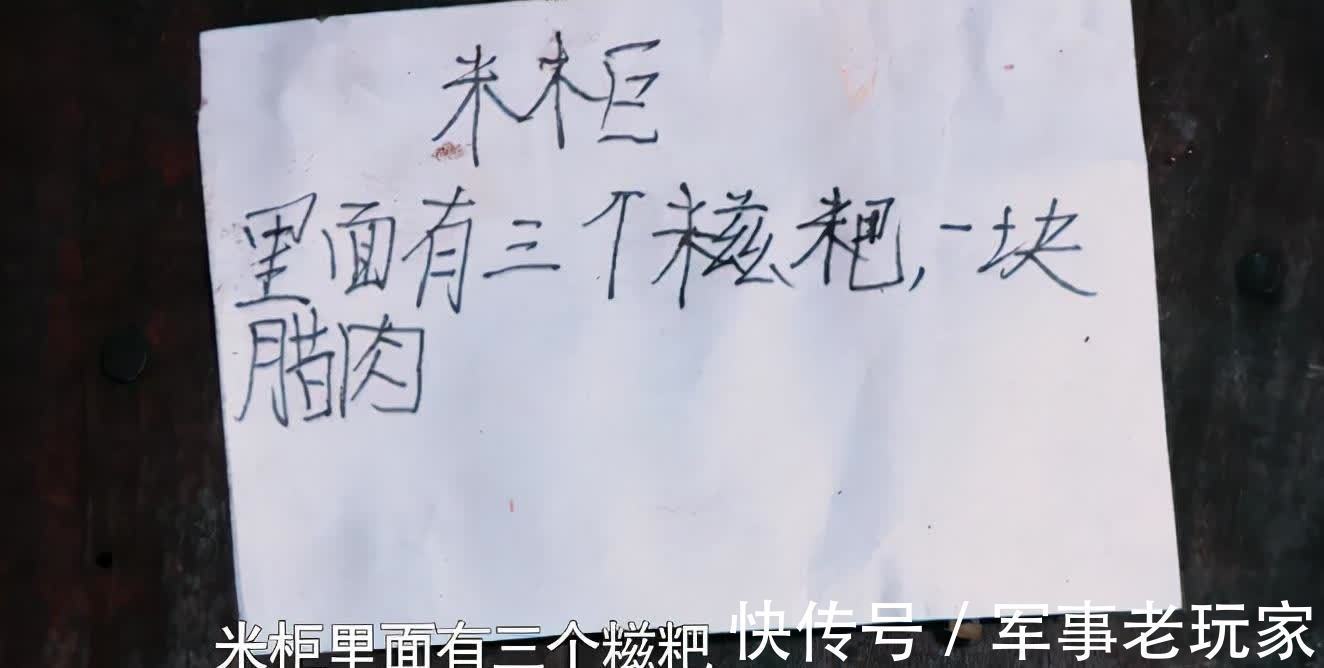 米柜
里面有三个糍粑,一块
腊肉
米柜里面有三个糍粑
快传号/军事老玩家